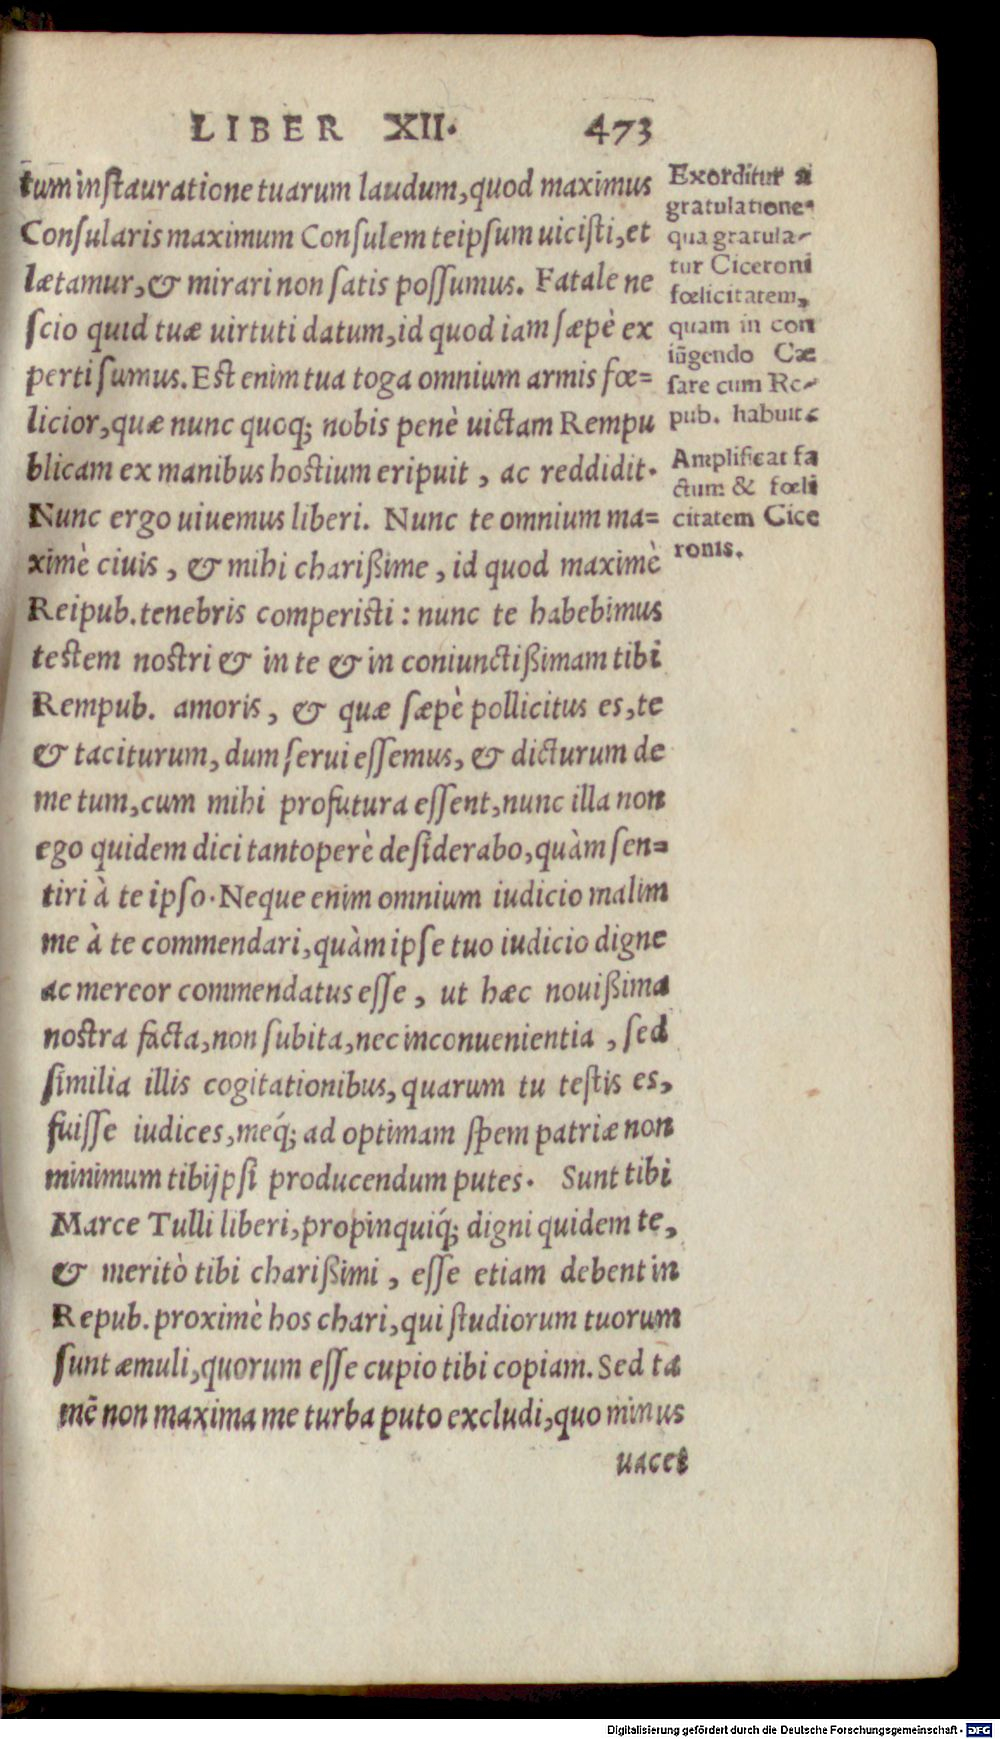 LIBER XII. 473
tum instauratione tuarum laudum, quod maximus
Consularis maximum Consulem teipsum uicisti, et
lætamur, & mirari non satis possumus. Fatale ne
scio quid tuæ uirtuti datum, id quod iam sæpè ex
perti sumus. Est enim tua toga omnium armis fœ=
licior, quæ nunc quoq; nobis penè uictam Rempu
blicam ex manibus hostium eripuit, ac reddidit.
Nunc ergo uiuemus liberi. Nunc te omnium ma=
ximè ciuis, & mihi charißime, id quod maximè
Reipub. tenebris comperisti: nunc te habebimus
testem nostri & in te & in coniunctißimam tibi
Rempub. amoris, & quæ sæpè pollicitus es, te
& taciturum, dum serui essemus, & dicturum de
me tum, cum mihi profutura essent, nunc illa non
ego quidem dici tantoperè desiderabo, quàm sen=
tiri à te ipso. Neque enim omnium iudicio malim
me à te commendari, quàm ipse tuo iudicio digne
ac mereor commendatus esse, ut hæc nouißima
nostra facta, non subita, nec inconuenientia, sed
similia illis cogitationibus, quarum tu testis es,
fuisse iudices, meq́; ad optimam spem patriæ non
minimum tibijpsi producendum putes. Sunt tibi
Marce Tulli liberi, propinquiq́; digni quidem te,
& meritò tibi charißimi, esse etiam debent in
Repub. proximè hos chari, qui studiorum tuorum
sunt æmuli, quorum esse cupio tibi copiam. Sed ta
mẽ non maxima me turba puto excludi, quo minus
uacet
Exorditur a
gratulatione
qua gratula-
tur Ciceroni
fœlicitatem,
quam in con
iũgendo Cæ
sare cum Re-
pub. habuit.
Amplificat fa
ctum & fœli
citatem Cice
ronis.
Digitalisierung gefördert durch die Deutsche Forschungsgemeinschaft - DFG